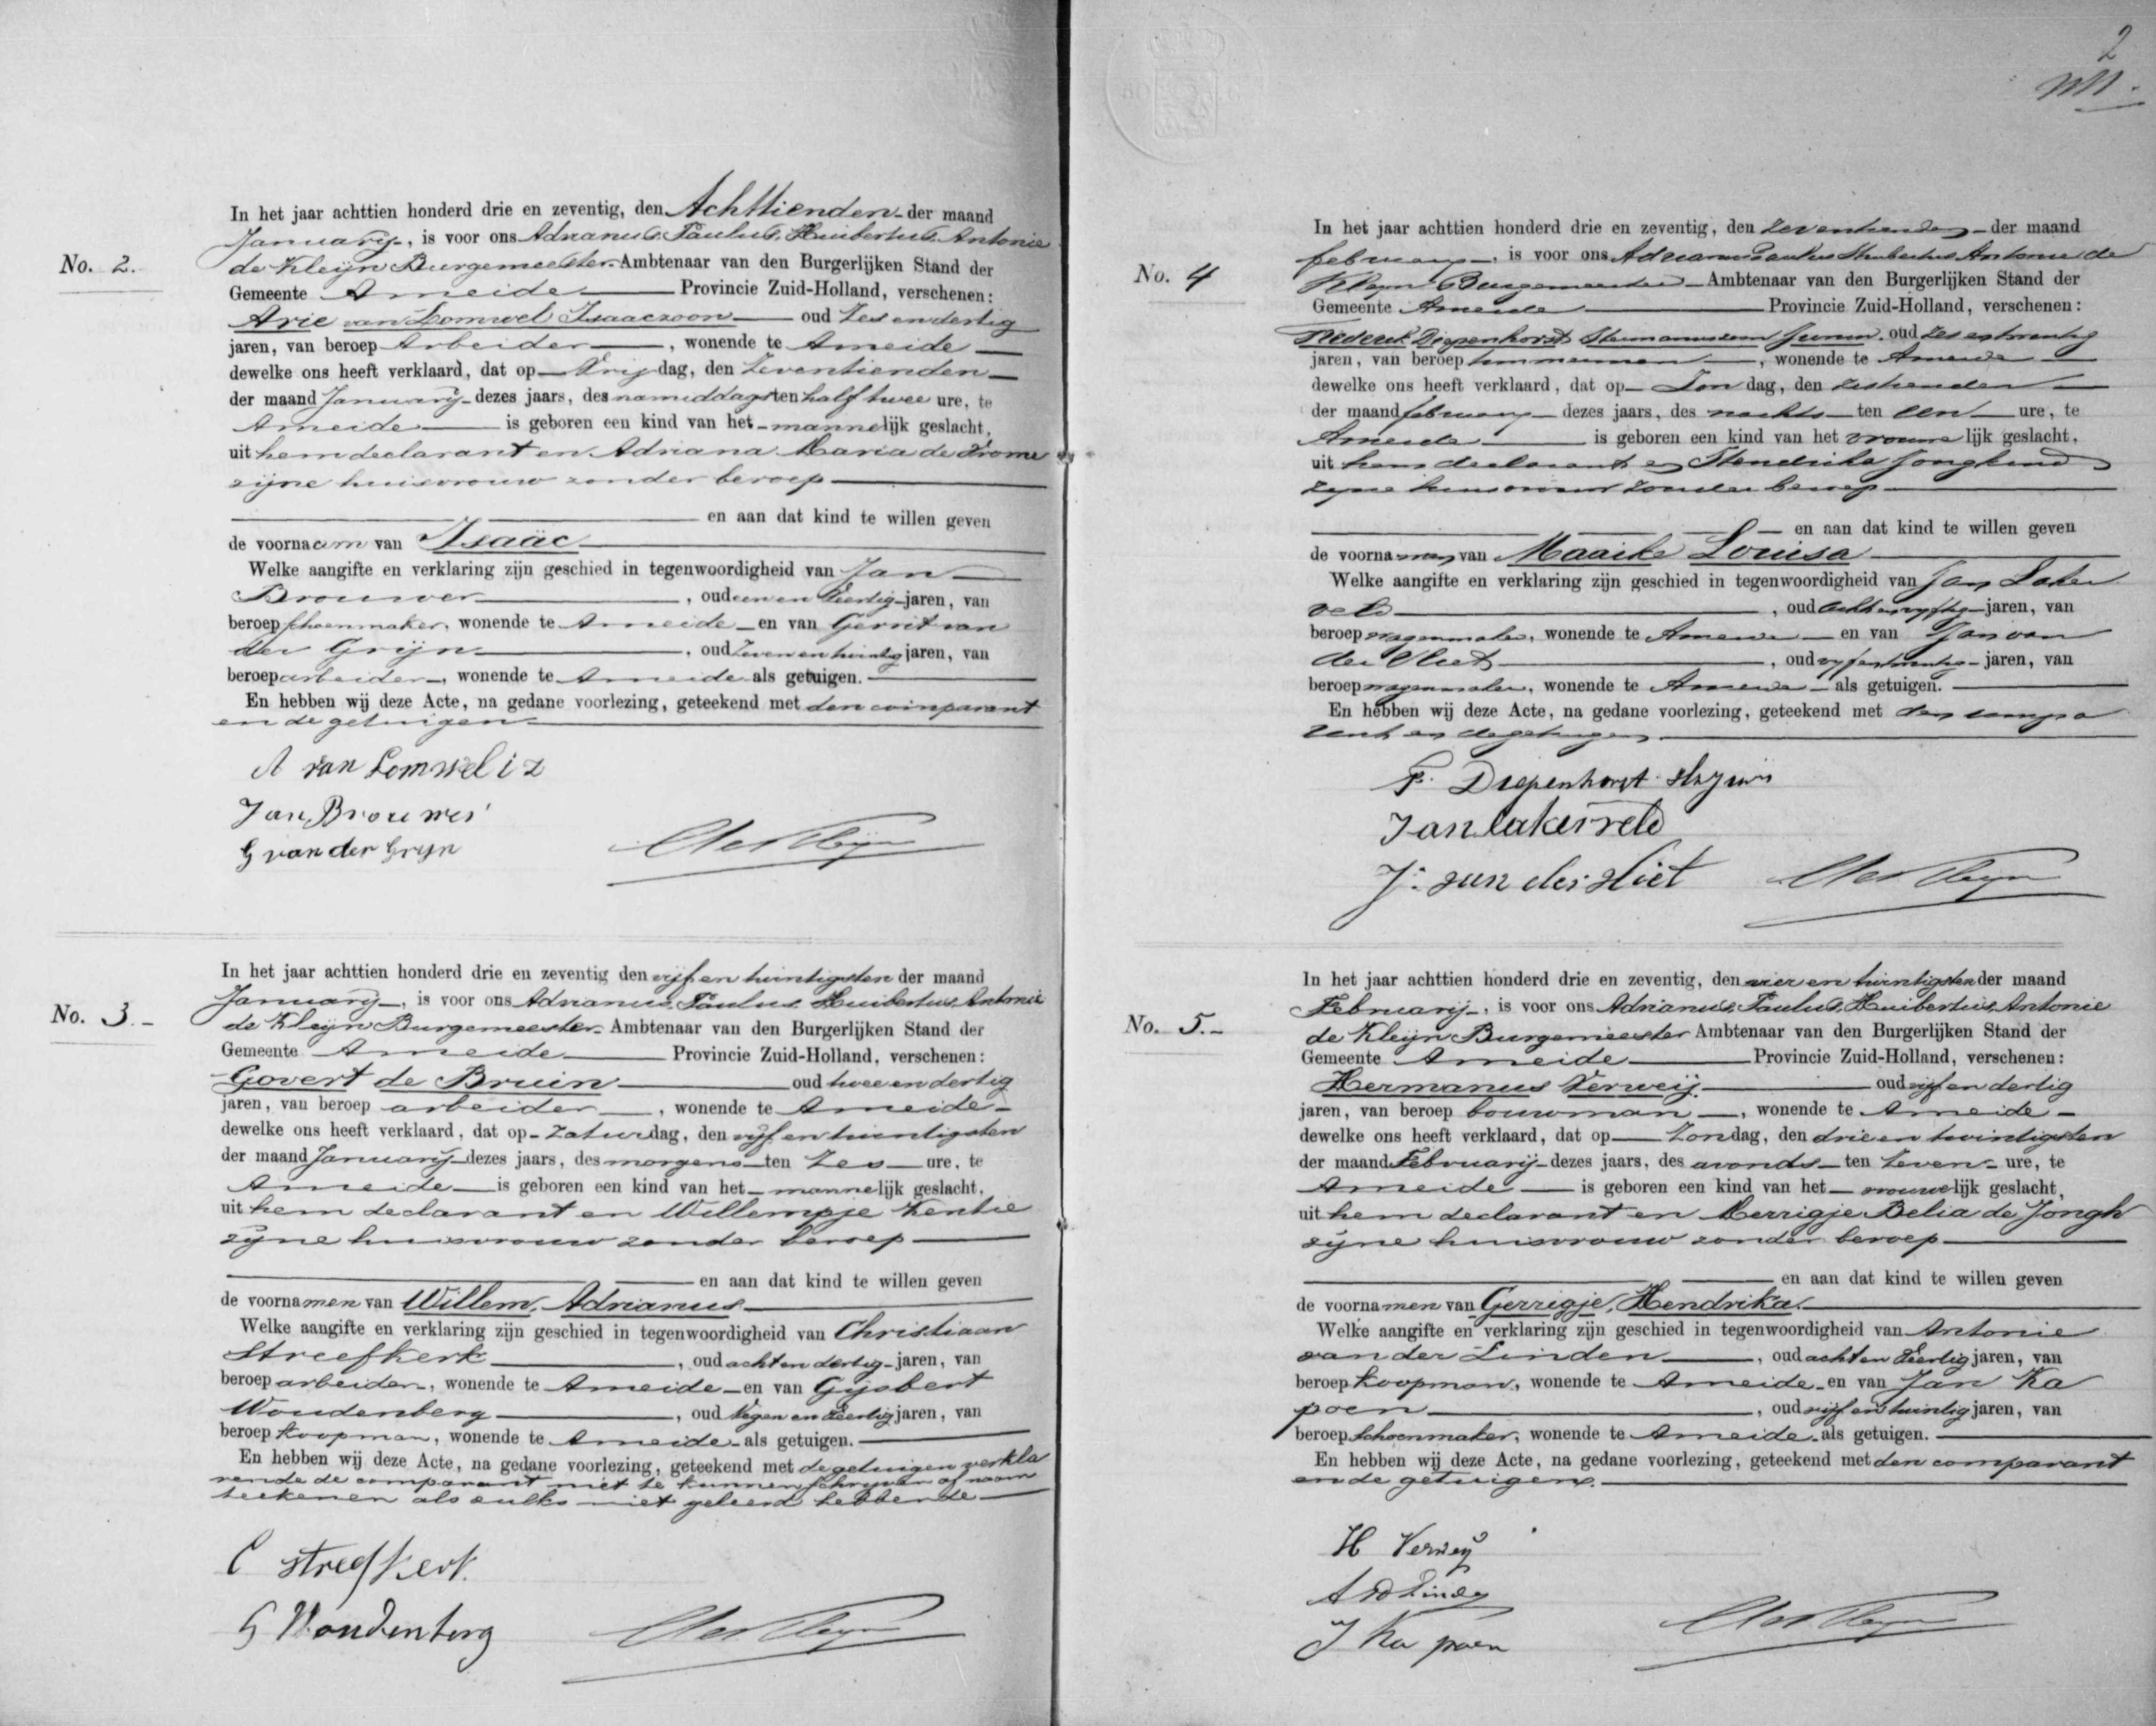 No. 2.
In het jaar achttien honderd drie en zeventig, den Achttienden der maand
January, is voor ons Adrianus, Paulus, Huibertus, Antonie
de Kleijn Burgemeester Ambtenaar van den Burgerlijken Stand der
Gemeente Ameide Provincie Zuid-Holland, verschenen:
Arie van Lomwel Isaaczoon oud Zes en dertig
jaren, van beroep Arbeider, wonende te Ameide
dewelke ons heeft verklaard, dat op Vrijdag, den Zeventienden
der maand January dezes jaars, des namiddags ten half twee ure, te
Ameide is geboren een kind van het mannelijk geslacht,
uit hem declarant en Adriana Maria de Krome
zijne huisvrouw zonder beroep
en aan dat kind te willen geven
de voornaam van Isaäc
Welke aangifte en verklaring zijn geschied in tegenwoordigheid van Jan
Brouwer, oud een en Veertig jaren, van
beroep schoenmaker, wonende te Ameide en van Gerrit van
der Grijn, oud Zeven en twintig jaren, van
beroep arbeider, wonende te Ameide als getuigen.
En hebben wij deze Acte, na gedane voorlezing, geteekend met den comparant
en de getuigen
A van Lomwel i z
Jan Brouwer
G van der Grijn
No. 3.
In het jaar achttien honderd drie en zeventig den vijf en twintigsten der maand
January, is voor ons Adrianus, Paulus, Huibertus, Antonie
de Kleijn Burgemeester Ambtenaar van den Burgerlijken Stand der
Gemeente Ameide Provincie Zuid-Holland, verschenen:
Govert de Bruin oud twee en dertig
jaren, van beroep arbeider, wonende te Ameide
dewelke ons heeft verklaard, dat op Zaturdag, den vijf en twintigsten
der maand January dezes jaars, des morgens ten Zes ure, te
Ameide is geboren een kind van het mannelijk geslacht,
uit hem declarant en Willempje Kentie
zijne huisvrouw zonder beroep
en aan dat kind te willen geven
de voornamen van Willem, Adrianus
Welke aangifte en verklaring zijn geschied in tegenwoordigheid van Christiaan
Streefkerk, oud acht en dertig jaren, van
beroep arbeider, wonende te Ameide en van Gijsbert
Woudenberg, oud Negen en Veertig jaren, van
beroep koopman, wonende te Ameide als getuigen.
En hebben wij deze Acte, na gedane voorlezing, geteekend met de getuigen verkla
rende de comparant niet te kunnen schrijven of naam
teekenen als zulks niet geleerd hebbende
C Streefkerk
G Woudenberg
2
No. 4
In het jaar achttien honderd drie en zeventig, den zeventienden der maand
february, is voor ons Adrianus Paulus Huibertus Antonie de
Kleyn Burgemeester Ambtenaar van den Burgerlijken Stand der
Gemeente Ameide Provincie Zuid-Holland, verschenen:
Frederik Diepenhorst Hermanuszoon Junior oud zes en twintig
jaren, van beroep timmerman, wonende te Ameide
dewelke ons heeft verklaard, dat op Zondag, den zestienden
der maand february dezes jaars, des nachts ten een ure, te
Ameide is geboren een kind van het vrouwelijk geslacht,
uit hem declarant en Hendrika Jongkind
zyne huisvrouw zonder beroep
en aan dat kind te willen geven
de voornamen van Maaike Louisa
Welke aangifte en verklaring zijn geschied in tegenwoordigheid van Jan Laker
veld, oud acht en vyftig jaren, van
beroep wagenmaker, wonende te Ameide en van Jan van
der Vliet, oud vyf en twintig jaren, van
beroep wagenmaker, wonende te Ameide als getuigen.
En hebben wij deze Acte, na gedane voorlezing, geteekend met den compa
rant en de getuigen
F. Diepenhorst Hz Jun
Jan Lakerveld
J. van der Vliet
No. 5.
In het jaar achttien honderd drie en zeventig, den vier en twintigsten der maand
February, is voor ons Adrianus, Paulus, Huibertus, Antonie
de Kleijn Burgemeester Ambtenaar van den Burgerlijken Stand der
Gemeente Ameide Provincie Zuid-Holland, verschenen:
Hermanus Verweij oud vijf en dertig
jaren, van beroep bouwman, wonende te Ameide
dewelke ons heeft verklaard, dat op Zondag, den drie en twintigsten
der maand February dezes jaars, des avonds ten Zeven ure, te
Ameide is geboren een kind van het vrouwelijk geslacht,
uit hem declarant en Merrigje Belia de Jongh
zijne huisvrouw zonder beroep
en aan dat kind te willen geven
de voornamen van Gerrigje, Hendrika.
Welke aangifte en verklaring zijn geschied in tegenwoordigheid van Antonie
van der Linden, oud acht en Veertig jaren, van
beroep koopman, wonende te Ameide en van Jan Ka
poen, oud vijf en twintig jaren, van
beroep Schoenmaker, wonende te Ameide als getuigen.
En hebben wij deze Acte, na gedane voorlezing, geteekend met den comparant
en de getuigen.
H Verweij
A vd Linden
J Ka poen